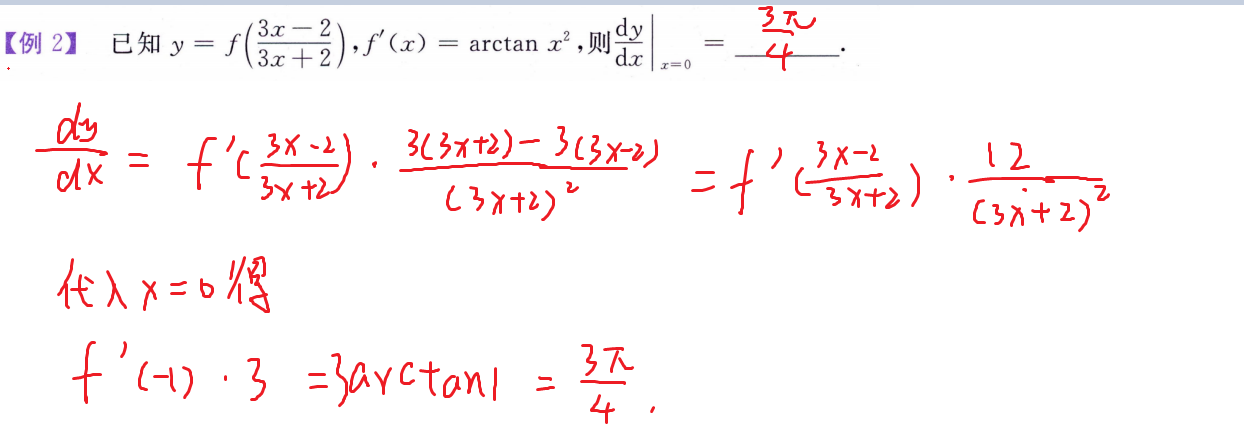 【例 2】 已知 y = f((3x − 2)/(3x + 2)), f′(x) = arctan x², 则 dy/dx|ₓ₌₀ = 3π/4.
dy/dx = f′((3x-2)/(3x+2)) · (3(3x+2) − 3(3x-2))/(3x+2)² = f′((3x-2)/(3x+2)) · 12/(3x+2)²
代入 x = 0 得
f′(-1) · 3 = 3arctan1 = 3π/4.